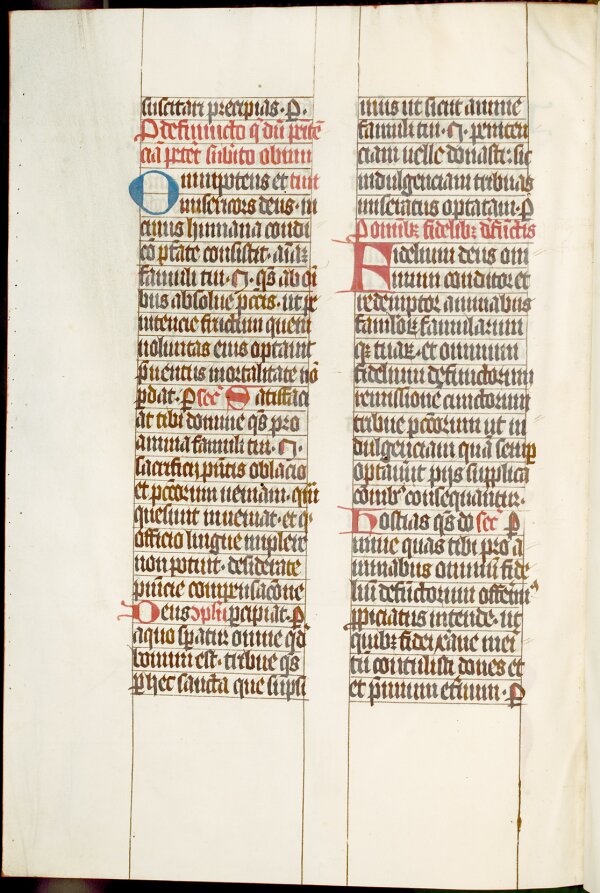 suscitari precipias · P̱ ·
P defuncto q̄ dū penitē
ciā petēs subito obierit
Omnipotens et
misericors deus · in
cuius humana condi
co p̄tate consistit · aīaꝫ
famuli tui · N · q̄s ab oī
bus absolue pccīs · ut pe
nitencie fructum quem
voluntas eius optauit
p̄uentus mortalitate nō
pdat · P secᵗ Satisfaci
at tibi domine q̄s pro
anima famuli tui · N ·
sacrificij pn̄tis oblacio
et pctōrum veniam · quā
quesiuit inueniat · et q
officio lingue implere
non potuit · desiderate
pn̄ie compensacōne
Deus percipiat · P
a quo sperat̄ omne qd̄
bonum est · tribue q̄s
per hec sancta que supsi
mus ut sicut anime
famuli tui · N · peniten
ciam velle donasti · sic
indulgenciam tribuas
miseratus optatam · P
P omībꝫ fidelibꝫ dēfūctis
Fidelium deus om
nium conditor et
redemptor animabus
famuloꝝ famularum
qꝫ tuaꝝ · et omnium
fidelium defunctorum
remissionē cunctorum
tribue pctōrum ut in
dulgenciam quā semꝑ
optauerūt pijs supplica
cōnibꝰ consequantur ·
Hostias q̄s dō secᵗ P
inue quas tibi pro a
nimabus omniū fide
liū defūctorum offerimꝰ
ꝓpiciatus intende · ut
quibꝫ fidei xane meri
tū contulisti dones et
et p̄mium etiam · P